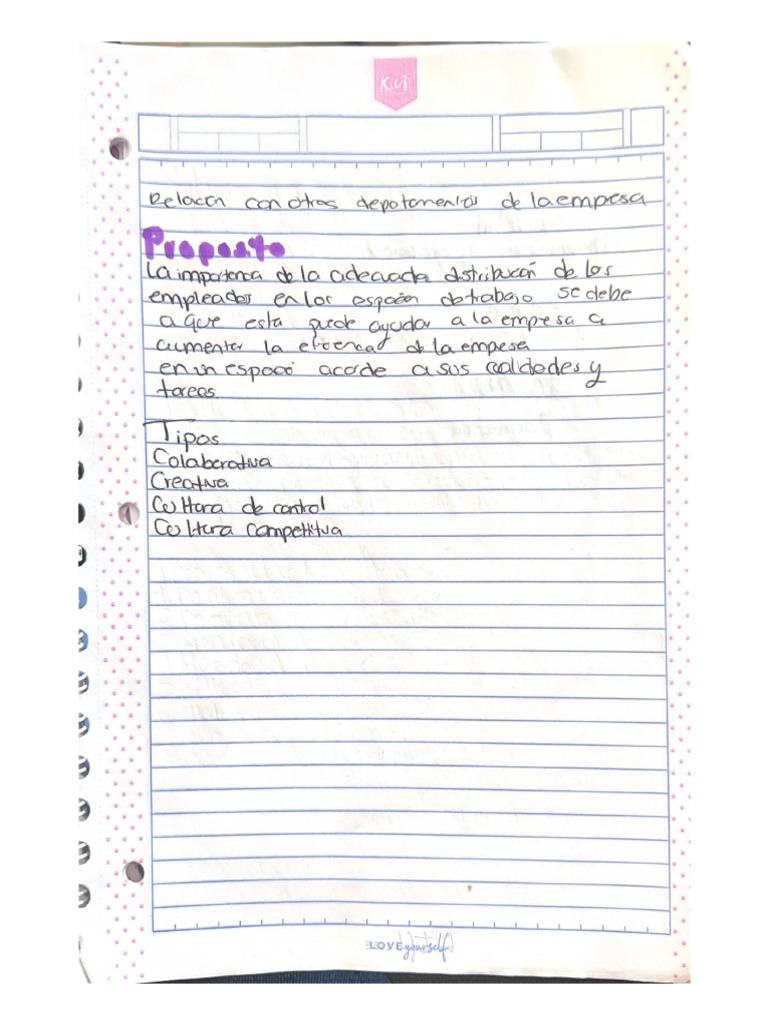 KUT
Relacion con otros departamentos de la empresa
Proposito
La importancia de la adecuada distribucion de los
empleados en los espacios de trabajo se debe
a que esta puede ayudar a la empresa a
aumentar la eficiencia de la empresa
en un espacio acorde a sus cualidades y
tareas
Tipos
Colaborativa
Creativa
Cultura de control
Cultura competitiva
LOVE yourself